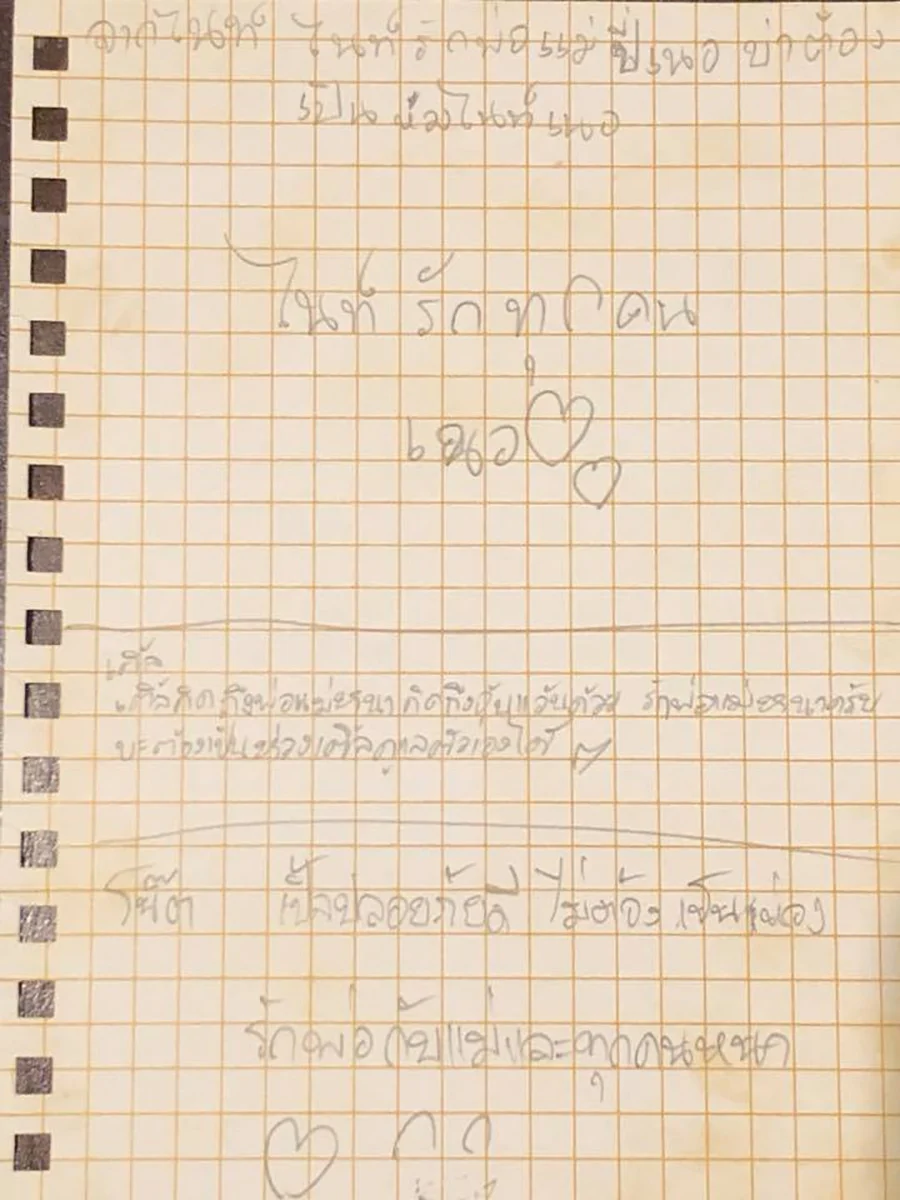 จากไนท์ ไนท์ รักพ่อแม่ พี่เนอ บ่าต้อง
เป็น ห่วงไนท์ เนอ
ไนท์ รัก ทุกคน
เนอ ♡
♡
เติ้ล
เติ้ลคิดถึงพ่อแม่ รักพ่อแม่
บะต้องเป็นห่วงเติ้ลดูแลตัวเองได้
โน๊ต เป้ลปลอยภัยดี ไม่ต้อง เป็นหว่ง
รักพ่อกับแม่และทุกคนหนา
♡